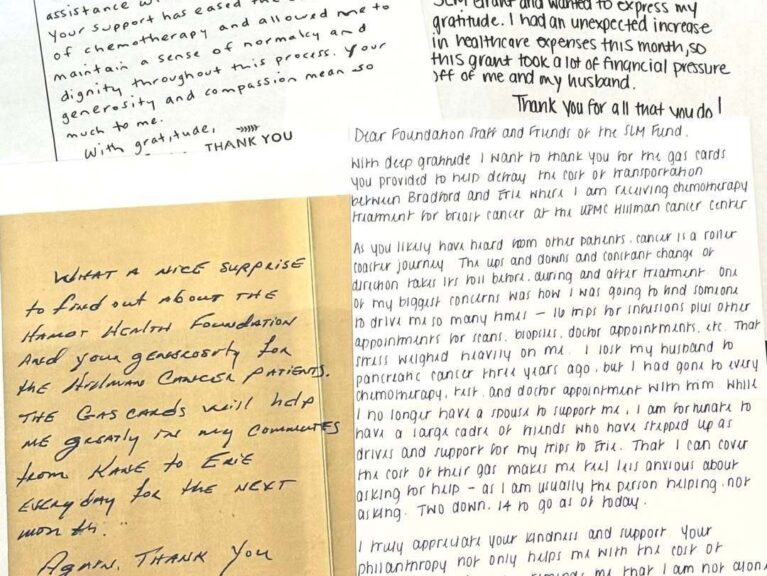 assistance w
your support has eased the
of chemotherapy and allowed me to
maintain a sense of normalcy and
dignity throughout this process. Your
generosity and compassion mean so
much to me.
With gratitude,
THANK YOU
SLM Grant and wanted to express my
gratitude. I had an unexpected increase
in healthcare expenses this month, so
this grant took a lot of financial pressure
off of me and my husband.
Thank you for all that you do!
Dear Foundation Staff and Friends of the SLM Fund.
With deep gratitude I want to thank you for the gas cards
you provided to help defray the cost of transportation
between Bradford and Erie where I am receiving chemotherapy
treatment for breast cancer at the UPMC Hillman Cancer Center
As you likely have heard from other patients, cancer is a roller
coaster journey. The ups and downs and constant change of
direction takes its toll before, during and after treatment. One
of my biggest concerns was how I was going to find someone
to drive me so many times – 16 trips for infusions plus other
appointments for scans, biopsies, doctor appointments, etc. That
stress weighed heavily on me. I lost my husband to
pancreatic cancer three years ago, but I had gone to every
chemotherapy, test, and doctor appointment with him. While
I no longer have a spouse to support me, I am fortunate to
have a large cadre of friends who have stepped up as
drivers and support for my trips to Erie. That I can cover
the cost of their gas makes me feel less anxious about
asking for help – as I am usually the person helping, not
asking. Two down, 14 to go as of today.
I truly appreciate your kindness and support. Your
philanthropy not only helps me with the cost of
reminds me that I am not alone
WHAT A NICE SURPRISE
to find out About THE
HAMOT HEALTH FOUNDATION
And your generosity for
the Hillman CANCER PATIENTS.
THE GAS CARDS will help
ME greatly in my COMMUTES
from KANE to ERIE
EVERYDAY for the NEXT
month.
AgAIN, THANK YOU